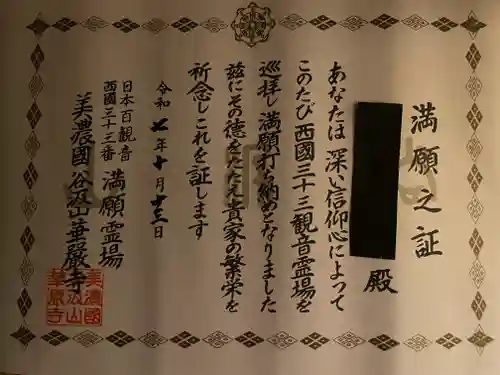 満願之証
殿
あなたは深い信仰心によって
このたび西國三十三観音霊場を
巡拝し満願打ち納めとなりました
茲にその徳をたたえ貴家の繁栄を
祈念しこれを証します
令和七年十月十三日
日本百観音
西國三十三番
満願霊場
美濃國谷汲山華厳寺
美濃國
谷汲山
華厳寺